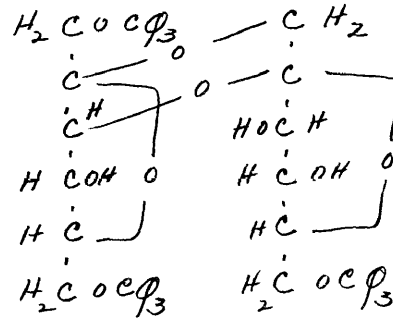 H₂ C O C φ₃ C H₂
O
C C
O
C H HO C H
H C OH O H C OH O
H C H C
H₂ C O C φ₃ H₂ C O C φ₃